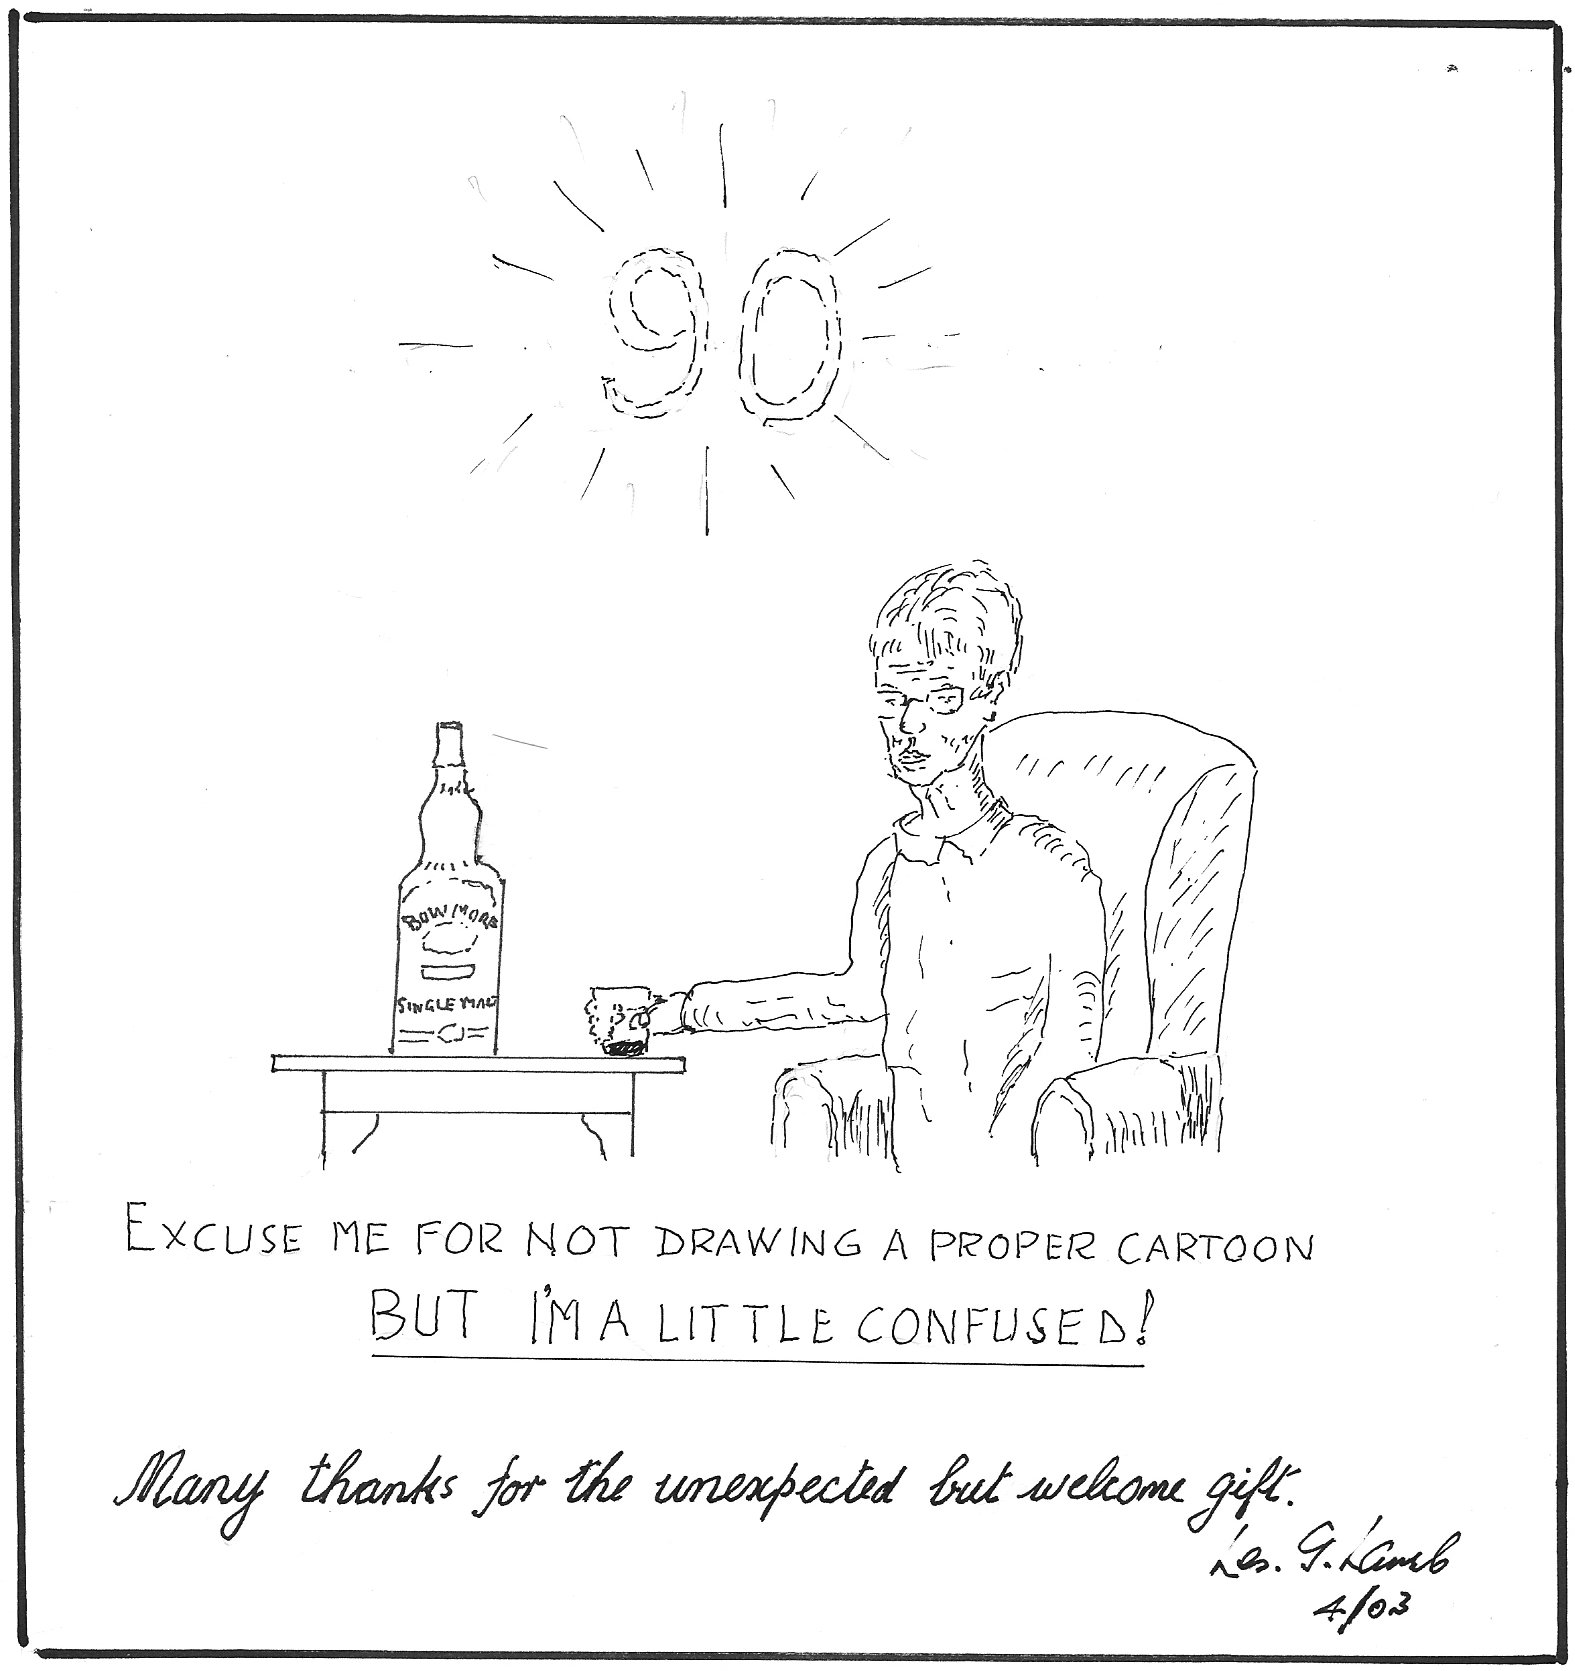 90
BOWMORE
SINGLE MALT
EXCUSE ME FOR NOT DRAWING A PROPER CARTOON
BUT I'M A LITTLE CONFUSED!
Many thanks for the unexpected but welcome gift.
Les. G. Lamb
4/03